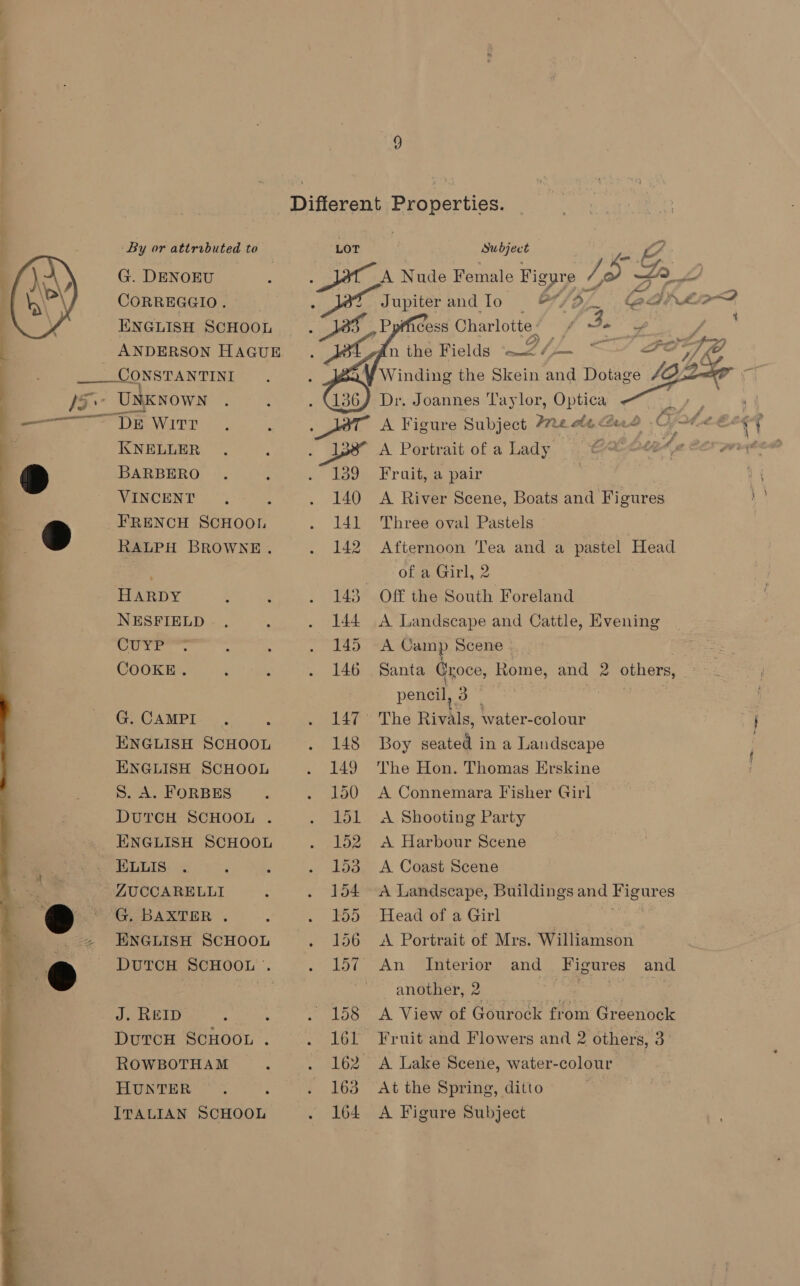 9
Different Properties.
By or attributed to LOT Subject
G. DENOEU . A Nude Female Figure
CORREGGIO . . Jupiter and Io
ENGLISH SCHOOL . Princess Charlotte
ANDERSON HAGUE . In the Fields
CONSTANTINI . . Winding the Skein and Dotage
UNKNOWN . . . 136 Dr. Joannes Taylor, Optica
DE WITT . . . A Figure Subject
KNELLER . . . 138 A Portrait of a Lady
BARBERO . . . 139 Fruit, a pair
VINCENT . . . 140 A River Scene, Boats and Figures
FRENCH SCHOOL . 141 Three oval Pastels
RALPH BROWNE . . 142 Afternoon Tea and a pastel Head
of a Girl, 2
HARDY . . . 143 Off the South Foreland
NESFIELD . . . 144 A Landscape and Cattle, Evening
CUYP . . . 145 A Camp Scene
COOKE . . . 146 Santa Croce, Rome, and 2 others,
pencil, 3
G. CAMPI . . . 147 The Rivals, water-colour
ENGLISH SCHOOL . 148 Boy seated in a Landscape
ENGLISH SCHOOL . 149 The Hon. Thomas Erskine
S. A. FORBES . . 150 A Connemara Fisher Girl
DUTCH SCHOOL . . 151 A Shooting Party
ENGLISH SCHOOL . 152 A Harbour Scene
ELLIS . . . 153 A Coast Scene
ZUCCARELLI . . 154 A Landscape, Buildings and Figures
G. BAXTER . . . 155 Head of a Girl
ENGLISH SCHOOL . 156 A Portrait of Mrs. Williamson
DUTCH SCHOOL . . 157 An Interior and Figures and
another, 2
J. REID . . . 158 A View of Gourock from Greenock
DUTCH SCHOOL . . 161 Fruit and Flowers and 2 others, 3
ROWBOTHAM . . 162 A Lake Scene, water-colour
HUNTER . . . 163 At the Spring, ditto
ITALIAN SCHOOL . 164 A Figure Subject